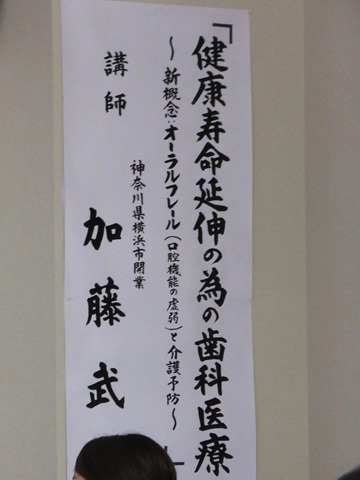 「健康寿命延伸の為の歯科医療」
～新概念：オーラルフレール（口腔機能の虚弱）と介護予防～
神奈川県横浜市開業
講師 加藤武